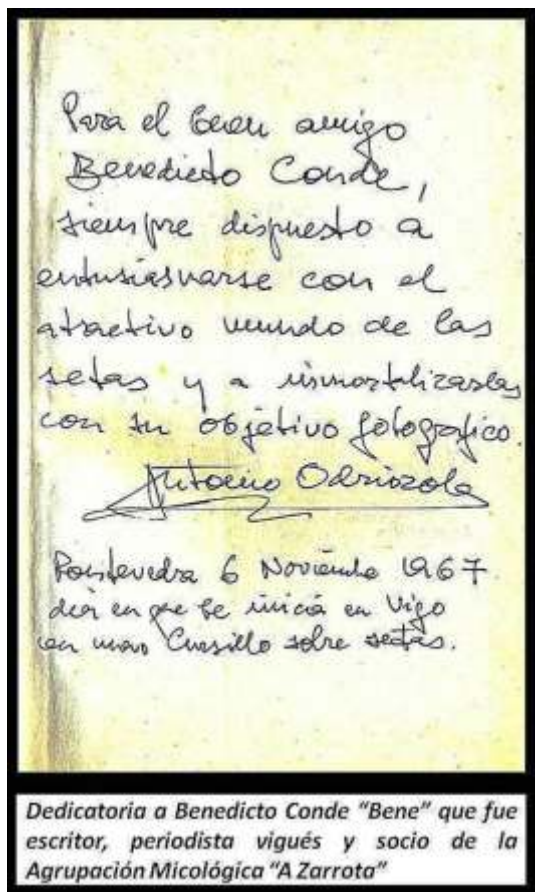 Para el buen amigo
Benedicto Conde,
siempre dispuesto a
entusiasmarse con el
atractivo mundo de las
setas y a inmortalizarlas
con su objetivo fotografico.
Antonio Odriozola
Pontevedra 6 Noviembre 1967
día en que se inicia en Vigo
un Cursillo sobre setas.
Dedicatoria a Benedicto Conde "Bene" que fue
escritor, periodista vigués y socio de la
Agrupación Micológica "A Zarrota"